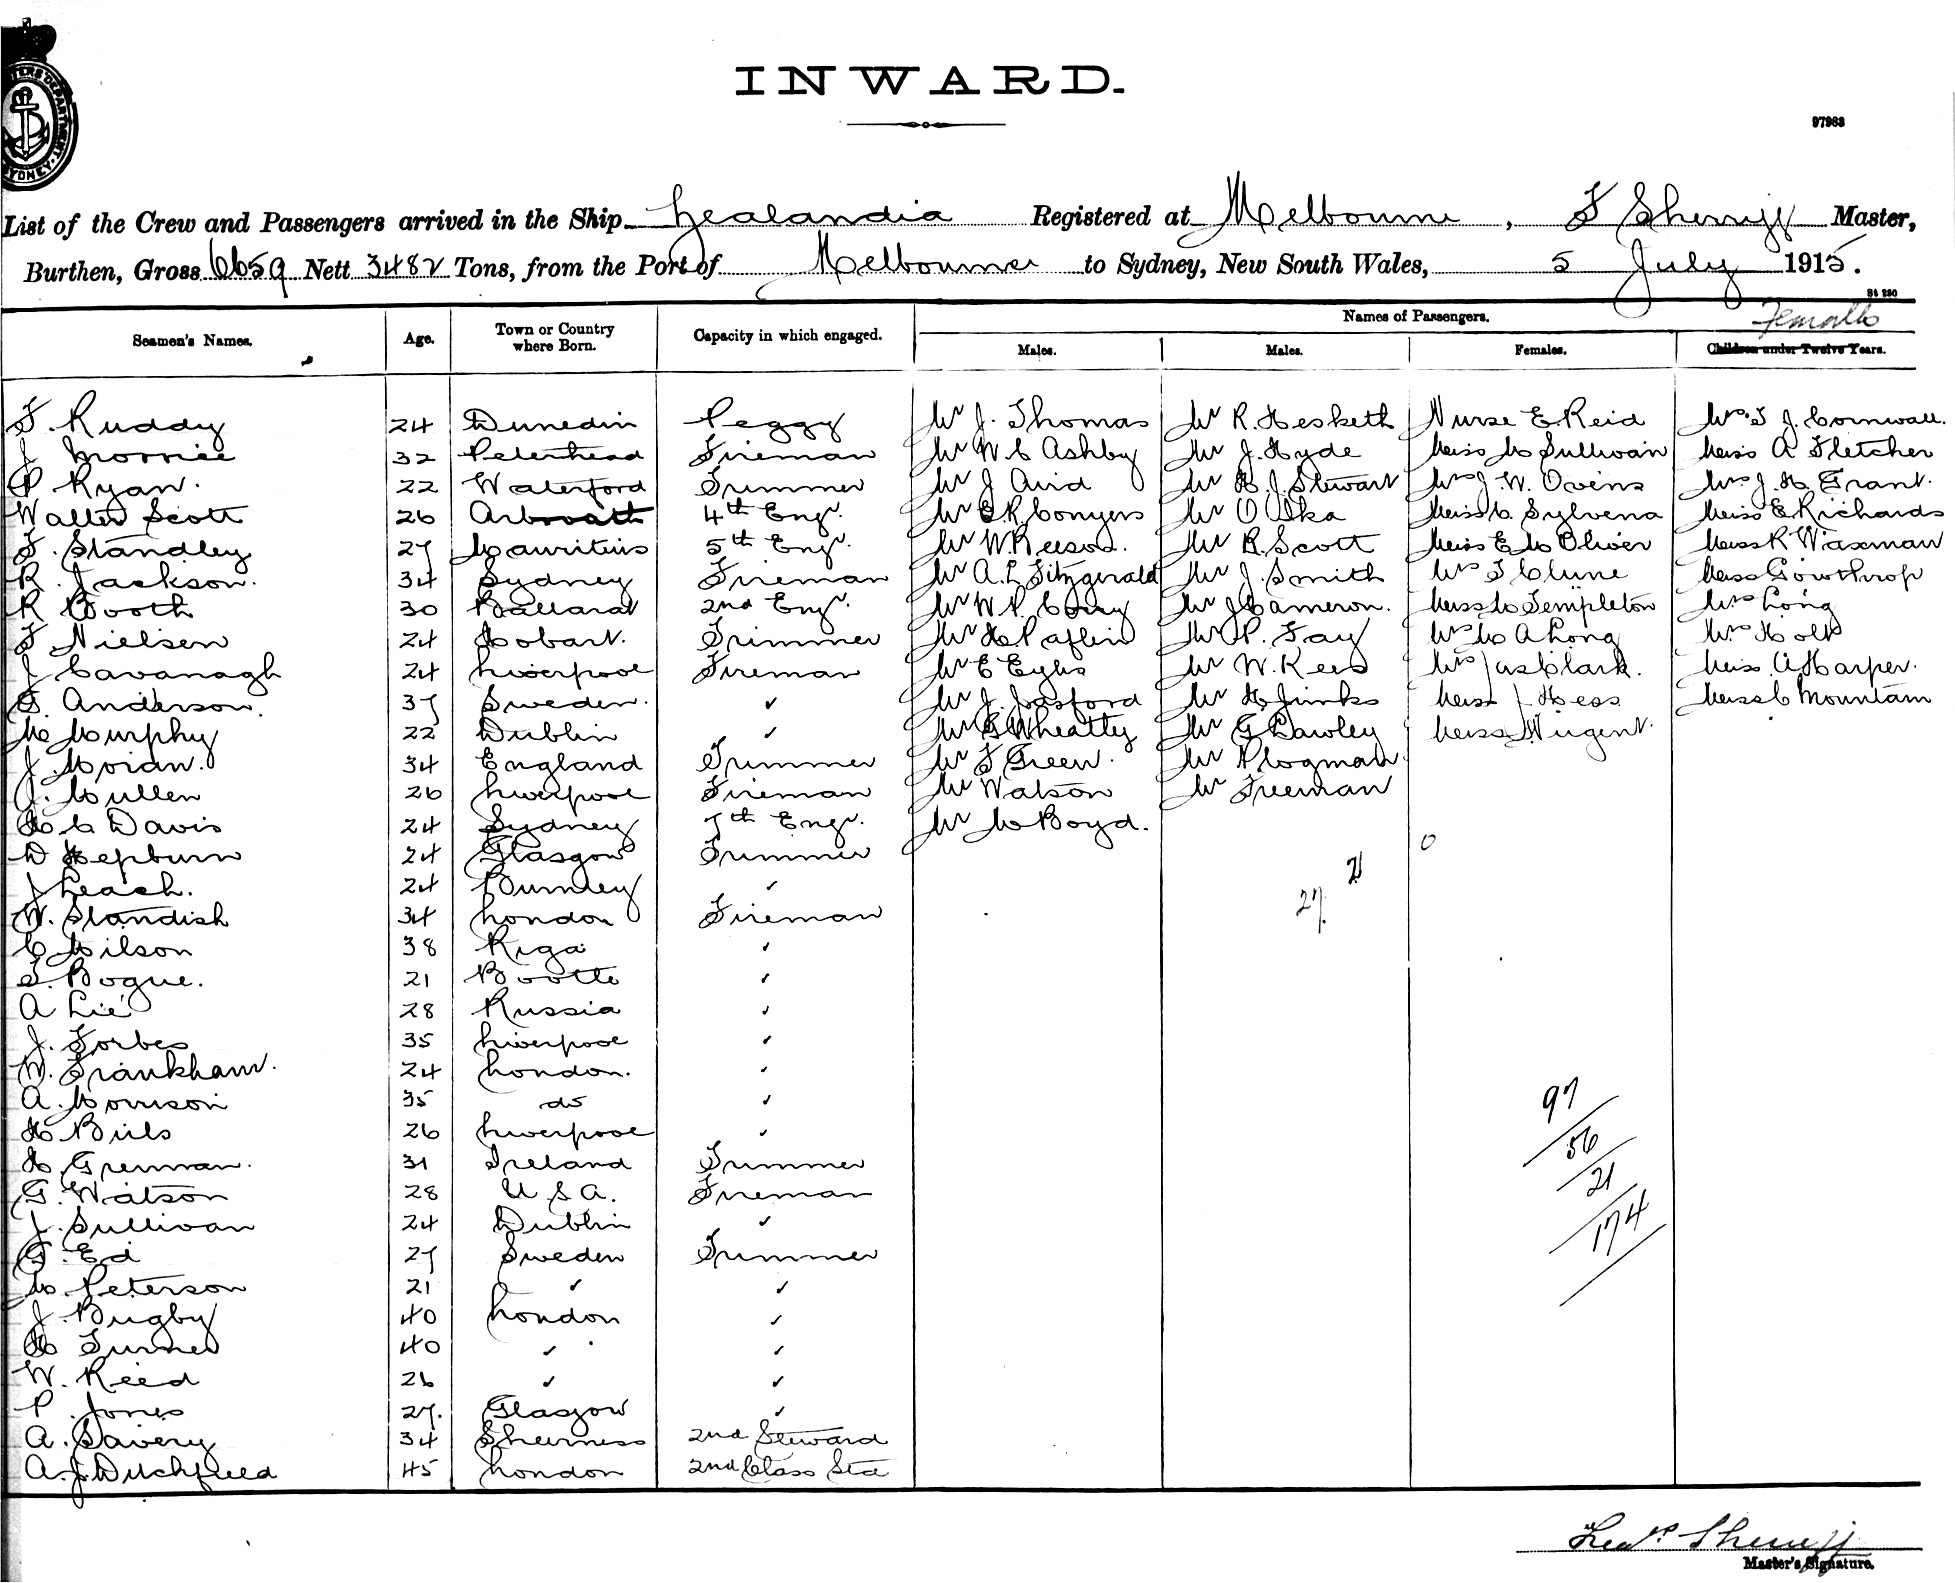 INWARD.
97963
List of the Crew and Passengers arrived in the Ship Zealandia Registered at Melbourne, F Sherriff Master,
Burthen, Gross 6659 Nett 3482 Tons, from the Port of Melbourne to Sydney, New South Wales, 5 July 1915.
St 230
Seamen's Names. Age. Town or Country where Born. Capacity in which engaged. Names of Passengers. Females
Males. Males. Females. Children under Twelve Years.
F. Ruddy 24 Dunedin Peggy Mr J. Thomas Mr R. Hesketh Nurse E Reid Mrs T J. Cornwall.
J Morrice 32 Peterhead Fireman Mr W C Ashby Mr J. Hyde Miss M Sullivan Miss A Fletcher
P Ryan. 22 Waterford Trimmer Mr J Arid Mr H. J. Stewart Mrs J W. Ovens Mrs J. H. Grant.
Walter Scott 26 Arbroath 4th Engr. Mr E. R. Conyers Mr O Miss C. Sylvena Miss E Richards
F. Standley 27 Mauritius 5th Engr. Mr W. Reeson. Mr R. Scott Miss E M Oliver Miss R Waxman
R. Jackson. 34 Sydney Fireman Mr A. L Fitzgerald Mr J. Smith Mrs T Clune Miss Gowthrop
R Booth 30 Ballarat 2nd Engr. Mr W. P. Mr J Cameron. Miss M Templeton Mrs Long
F Nielsen 24 Hobart. Trimmer Mr H. Paflin Mr P. Fay Mrs M A Long Mrs Holt
J Cavanagh 24 Liverpool Fireman Mr E Eyles Mr W. Rees Mrs Jas Clark. Miss A Harper.
G. Anderson. 37 Sweden. ✓ Mr J. Mr H Jinks Miss J Hess Miss C Mountain
M Murphy 22 Dublin ✓ Mr G Wheatley Mr G Lawley Miss Nugent.
J. Moran. 34 England Trimmer Mr F Green. Mr Plogman
J. Mullen 26 Liverpool Fireman Mr Watson Mr Freeman
H C Davis 24 Sydney 7th Engr. Mr M Boyd.
D Hepburn 24 Glasgow Trimmer 0
J Leach. 24 Burnley ✓ 21
W. Standish 34 London Fireman 27.
C Wilson 38 Riga ✓
S. Bogue. 21 Bootle ✓
A Lie 28 Russia ✓
J. Forbes 35 Liverpool ✓
W. Frankham. 24 London. ✓
A. Morrison 35 do ✓ 97
H Biils 26 Liverpool ✓ 56
H Greenan. 31 Ireland Trimmer 21
G. Watson 28 U S A. Fireman
J. Sullivan 24 Dublin ✓ 174
G. Ed 27 Sweden Trimmer
M. Peterson 21 ✓ ✓
J. Bugby 40 London ✓
H Turner 40 ✓ ✓
W. Reed 26 ✓ ✓
P. Jones 27. Glasgow ✓
A. Savery 34 Sheerness 2nd Steward
A. J. Ditchfield 45 London 2nd Class Std
Sherriff
Master's Signature.